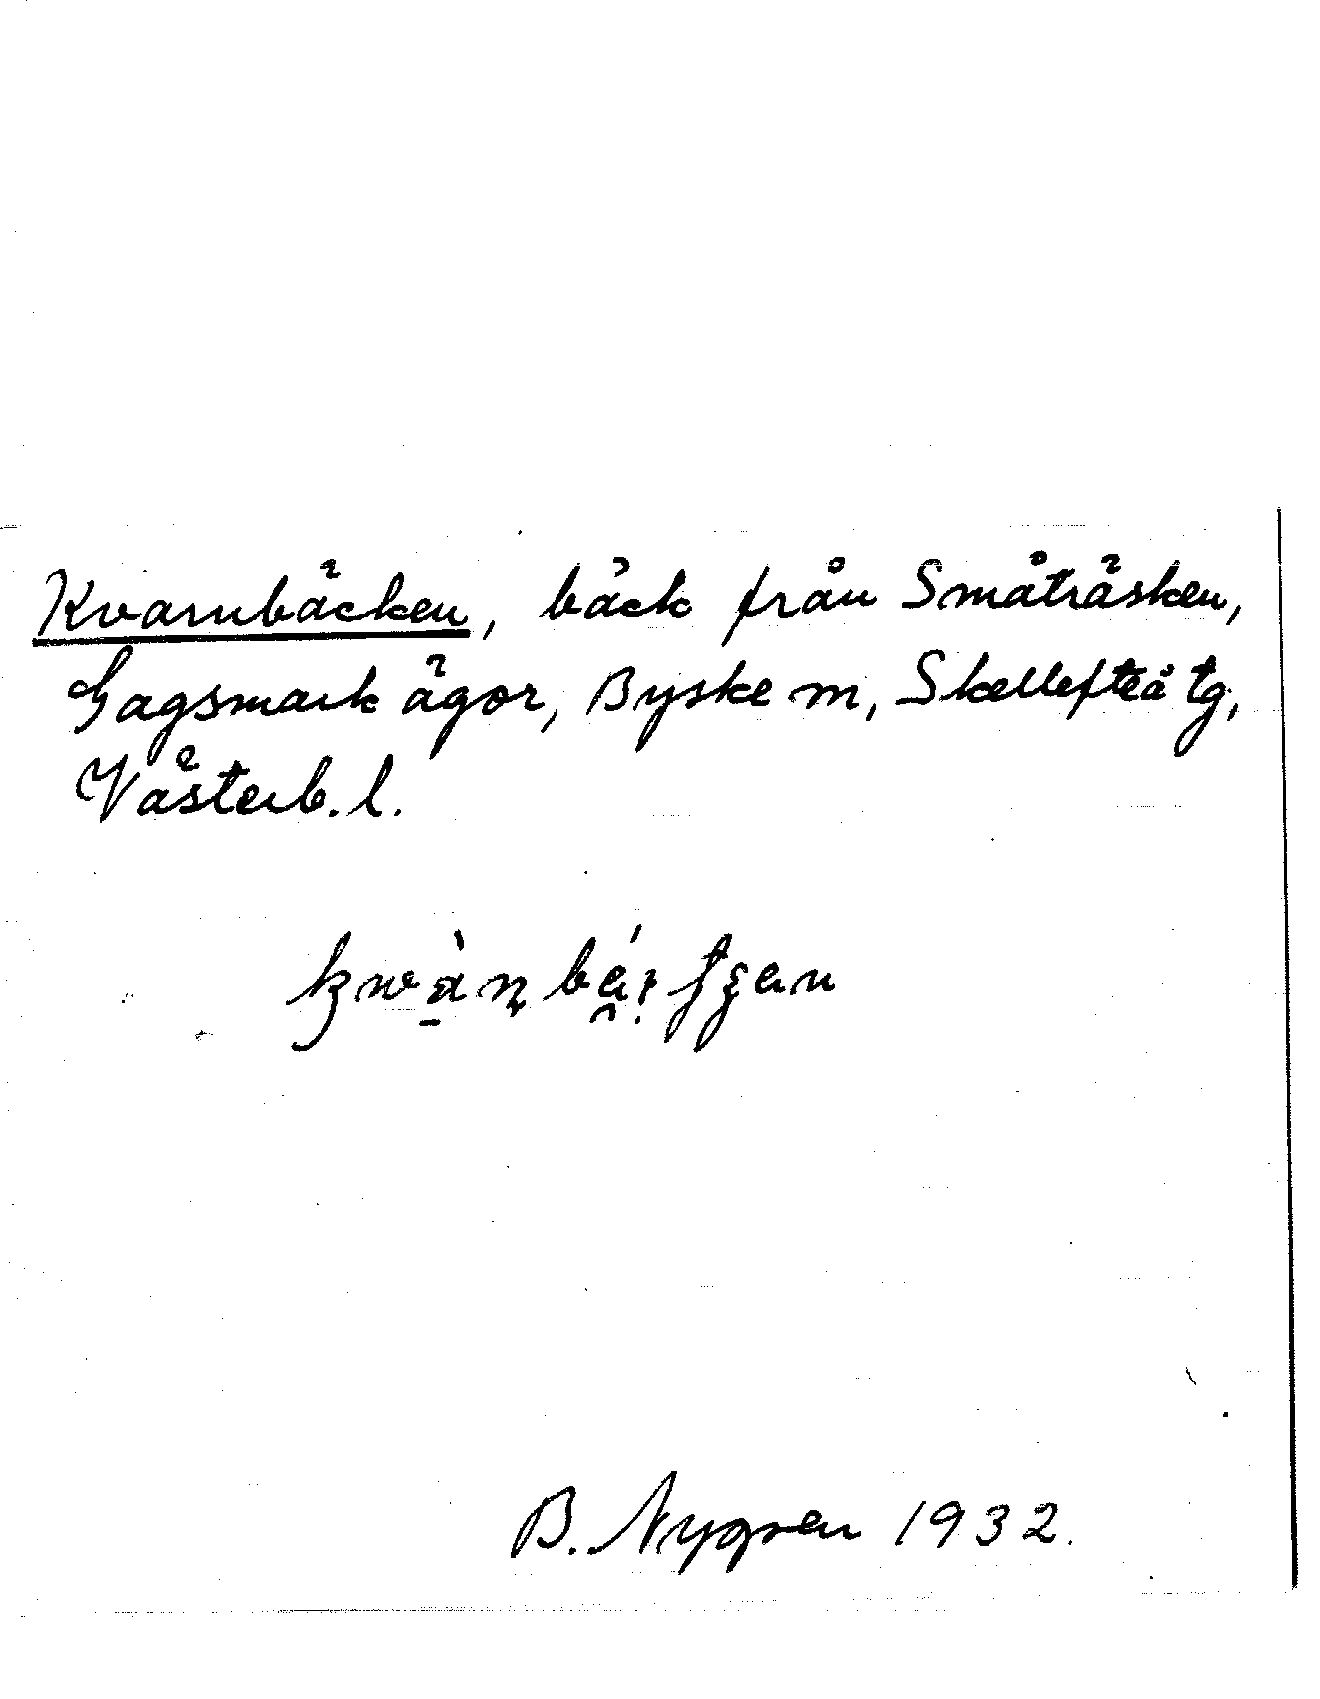 Kvarnbäcken, bäck från Småträsken,
Gagsmark ägor, Byske m, Skellefteå tg,
Västerb. l.
B. Nygren 1932.